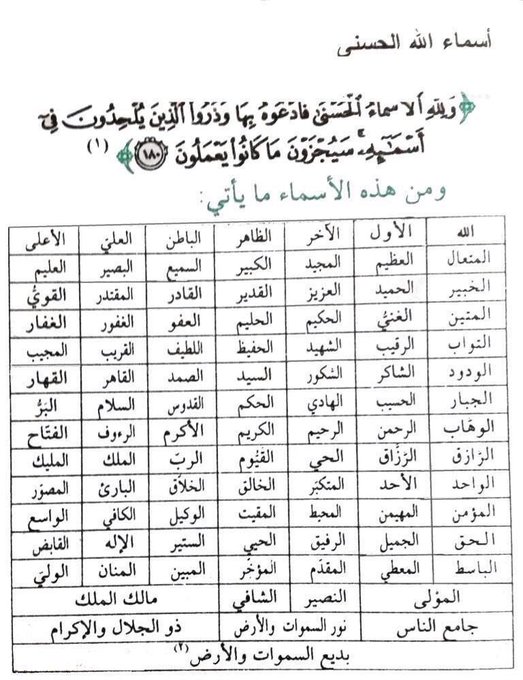 أسماء الله الحسنى
﴿وَلِلَّهِ ٱلْأَسْمَاءُ ٱلْحُسْنَىٰ فَٱدْعُوهُ بِهَا وَذَرُوا۟ ٱلَّذِينَ يُلْحِدُونَ فِىٓ
أَسْمَٰٓئِهِۦ ۚ سَيُجْزَوْنَ مَا كَانُوا۟ يَعْمَلُونَ ۝١٨٠﴾ (١)
ومن هذه الأسماء ما يأتي:
الله الأول الآخر الظاهر الباطن العلي الأعلى
المتعال العظيم المجيد الكبير السميع البصير العليم
الخبير الحميد العزيز القدير القادر المقتدر القويُّ
المتين الغنيُّ الحكيم الحليم العفو الغفور الغفار
التواب الرقيب الشهيد الحفيظ اللطيف القريب المجيب
الودود الشاكر الشكور السيد الصمد القاهر القهار
الجبار الحسيب الهادي الحكم القدوس السلام البَرُّ
الوهاب الرحمن الرحيم الكريم الأكرم الرءوف الفتَّاح
الرازق الرَّزَّاق الحي القَيُّوم الربّ الملك المليك
الواحد الأحد المتكبّر الخالق الخلاَّق البارئ المصوّر
المؤمن المهيمن المحيط المقيت الوكيل الكافي الواسع
الحق الجميل الرفيق الحيي الستير الإله القابض
الباسط المعطي المقدّم المؤخّر المبين المنان الوليّ
المولى النصير الشافي مالك الملك
جامع الناس نور السموات والأرض ذو الجلال والإكرام
بديع السموات والأرض (٢)